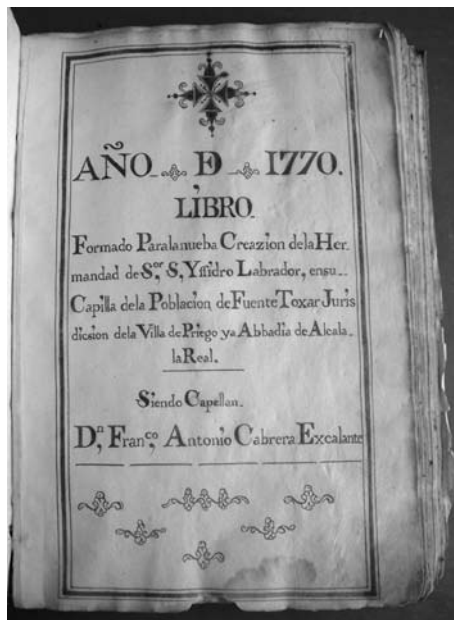 AÑO. D 1770.
LIBRO.
Formado Paralanueba Creazion dela Her
mandad de S,or S, Yssidro Labrador, ensu..
Capilla dela Poblacion, de Fuente Toxar Juris
diccion dela Villa de Priego ya Abbadia de Alcala.
la Real.
Siendo Capellan.
D,n Fran,co Antonio Cabrera Excalante